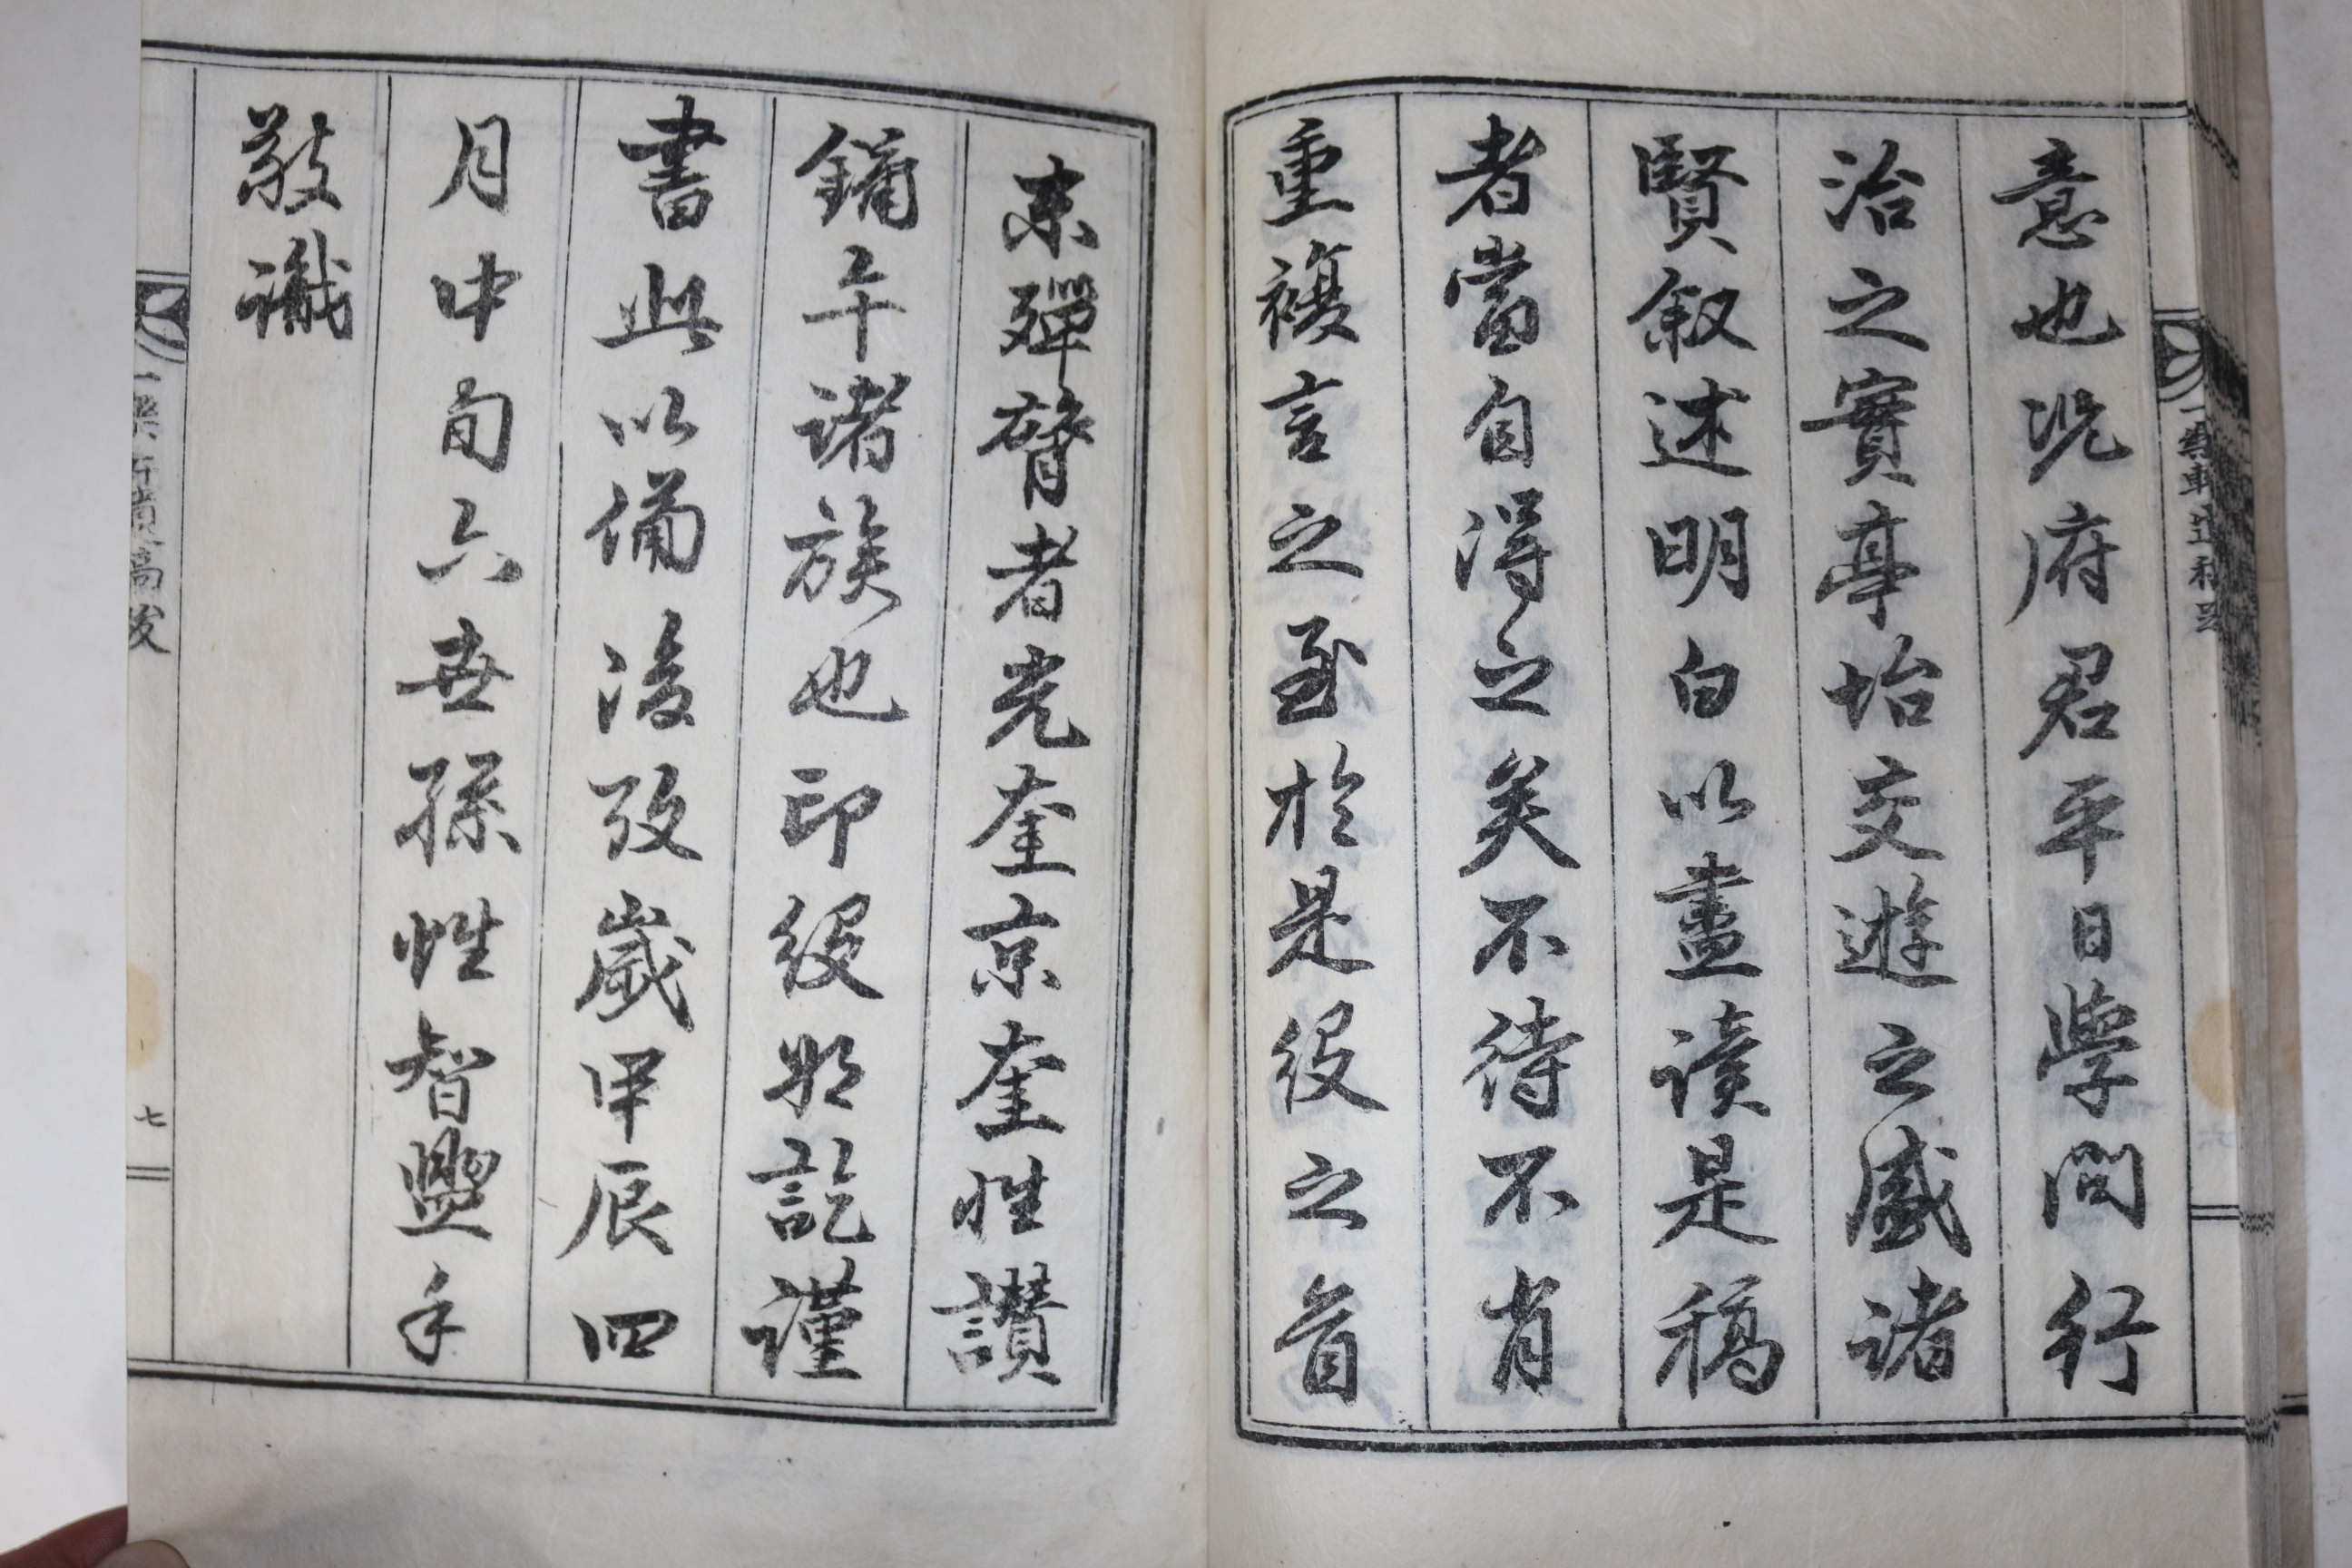 意也況府君平日學問行
治之實亭坮交遊之盛諸
賢叙述明白以盡讀是稿
者當自得之矣不待不肖
重複言之至於是役之首
末殫膂者光奎京奎性讃
鏞午諸族也印役將訖謹
書此以備後攷歲甲辰四
月中旬六世孫性智盥手
敬識
七